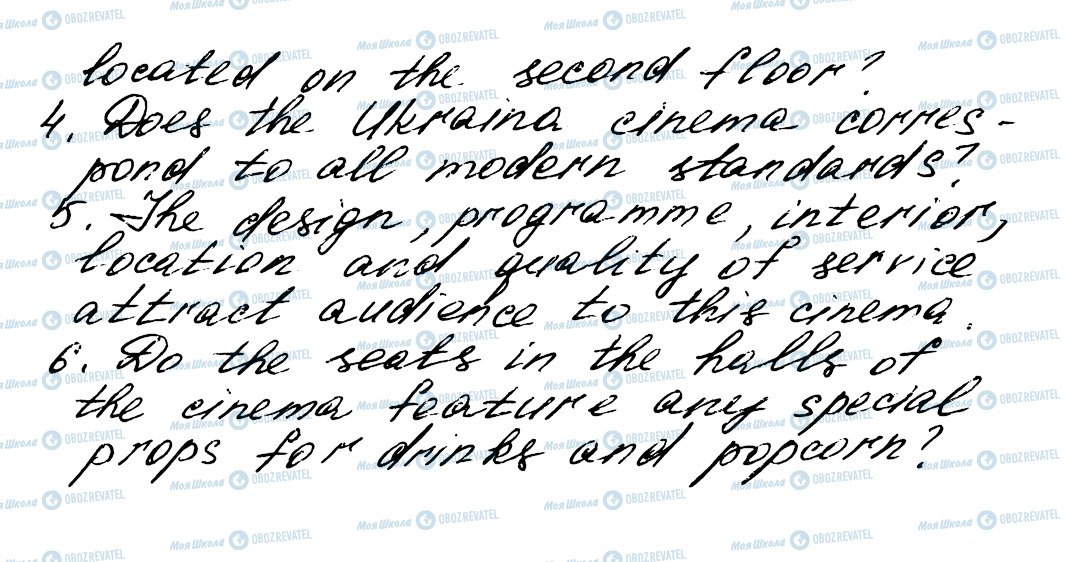 located on the second floor?
4. Does the Ukraina cinema corres-
pond to all modern standards?
5. The design, programme, interior,
location and quality of service
attract audience to this cinema.
6. Do the seats in the halls of
the cinema feature any special
props for drinks and popcorn?